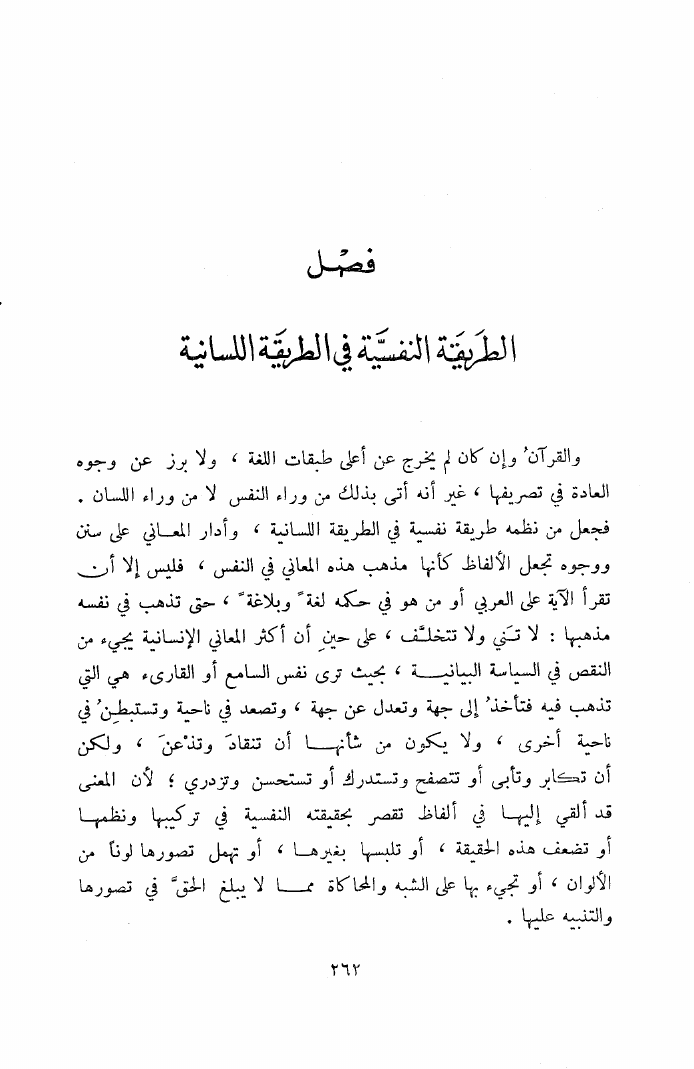 فصْل
الطَريقَة النفسيَّة في الطريقَة اللسانية
والقرآنُ وإن كان لم يخرج عن أعلى طبقات اللغة ، ولا برز عن وجوه
العادة في تصريفها ، غير أنه أتى بذلك من وراء النفس لا من وراء اللسان .
فجعل من نظمه طريقة نفسية في الطريقة اللسانية ، وأدار المعاني على سنن
ووجوه تجعل الألفاظ كأنها مذهب هذه المعاني في النفس ، فليس إلا أن
تقرأ الآية على العربي أو من هو في حكمه لغةً وبلاغةً ، حتى تذهب في نفسه
مذهبها : لا تَني ولا تتخلَّف ، على حينِ أن أكثر المعاني الإنسانية يجيء من
النقص في السياسة البيانية ، بحيث ترى نفس السامع أو القارىء هي التي
تذهب فيه فتأخذُ إلى جهة وتعدل عن جهة ، وتصعد في ناحية وتستبطِنُ في
ناحية أخرى ، ولا يكون من شأنها أن تنقادَ وتذْعنَ ، ولكن
أن تكابر وتأبى أو تتصفح وتستدرك أو تستحسن وتزدري ؛ لأن المعنى
قد ألقي إليها في ألفاظ تقصر بحقيقته النفسية في تركيبها ونظمها
أو تضعف هذه الحقيقة ، أو تلبسها بغيرها ، أو تهمل تصورها لوناً من
الألوان ، أو تجيء بها على الشبه والمحاكاة مما لا يبلغ الحقَّ في تصورها
والتنبيه عليها .
٢٦٢